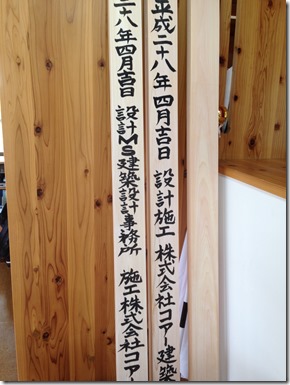 平成二十八年四月吉日 設計施工 株式会社コアー建築
二十八年四月吉日 設計MS建築設計事務所 施工株式会社コアー